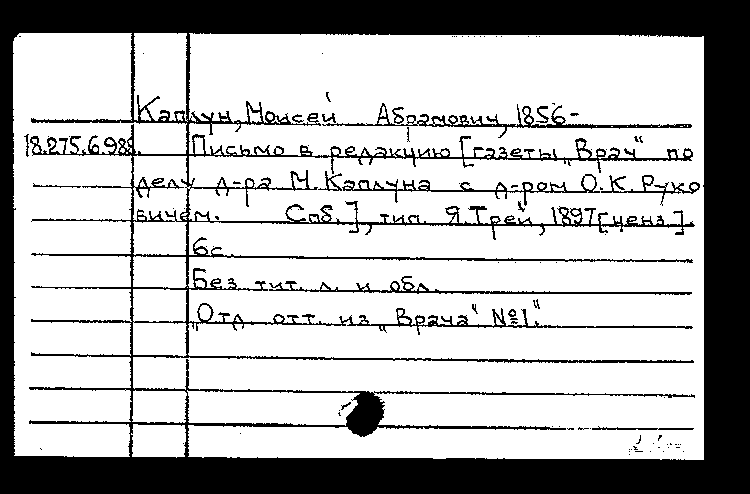 Каплун, Моисей Абрамович, 1856-
18.275.6.988. Письмо в редакцию [газеты „Врач" по
делу д-ра М. Каплуна с д-ром О.К. Руко
вичем. Спб.], тип. Я. Трей, 1897 [ценз.].
6с.
Без тит. л. и обл.
„Отд. отт. из „Врача" №1."